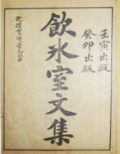 壬寅出版
癸卯出版
飲冰室文集